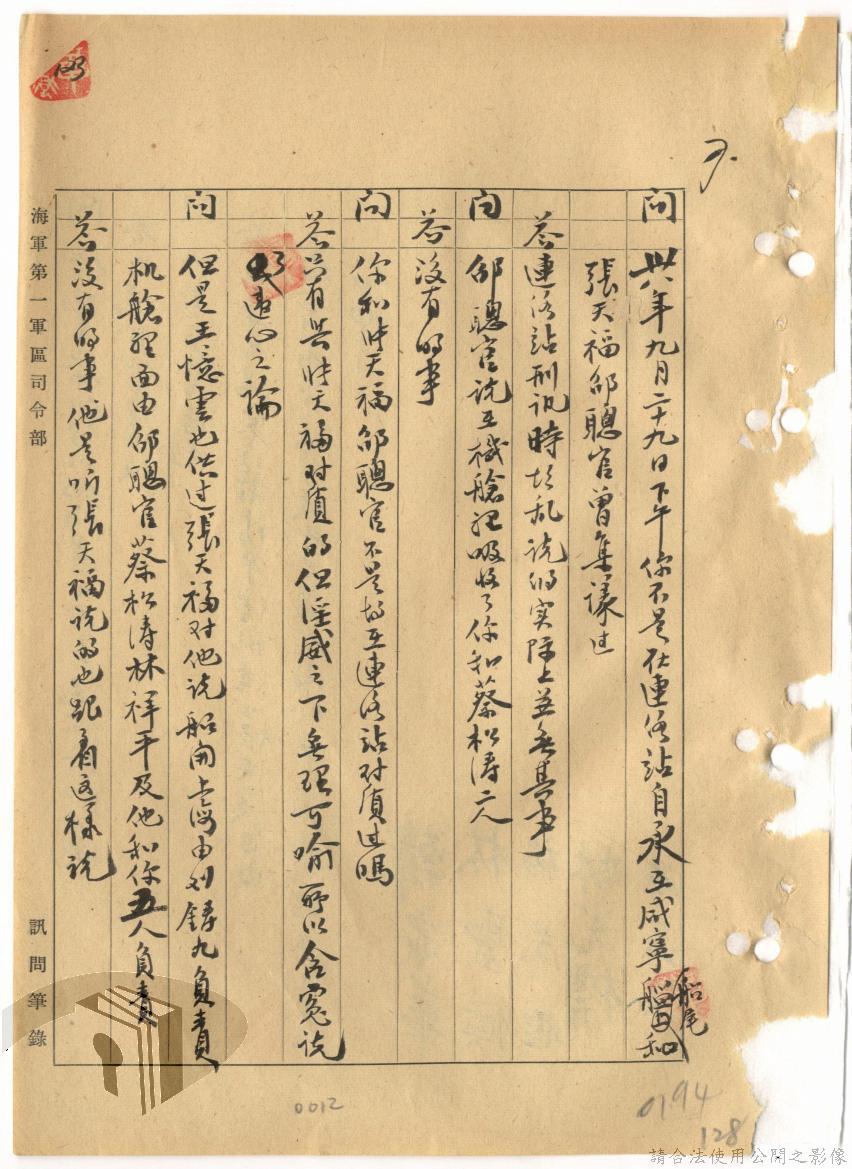 問 卅八年九月二十九日下午你不是在連絡站自承在咸寧船尾和
張天福邵聰官曾集議过
答 連絡站刑訊時胡乱说的实际上並無其事
問 邵聰官说在機艙裡吸收了你和蔡松濤二人
答 没有的事
問 你和张天福邵聰官不是均在連絡站对质过嗎
答 只有與张天福对质的但淫威之下無理可喻所以含寃说
了違心之論
問 但是王憶雲也供过張天福对他说船開上海由刘鑄九負責
机艙裡面由邵聰官蔡松涛林祥平及他和你五人負責
答 没有的事他是听張天福说的也跟着這样说
海軍第一軍區司令部
訊問筆錄
0012
0194
128
請合法使用公開之影像